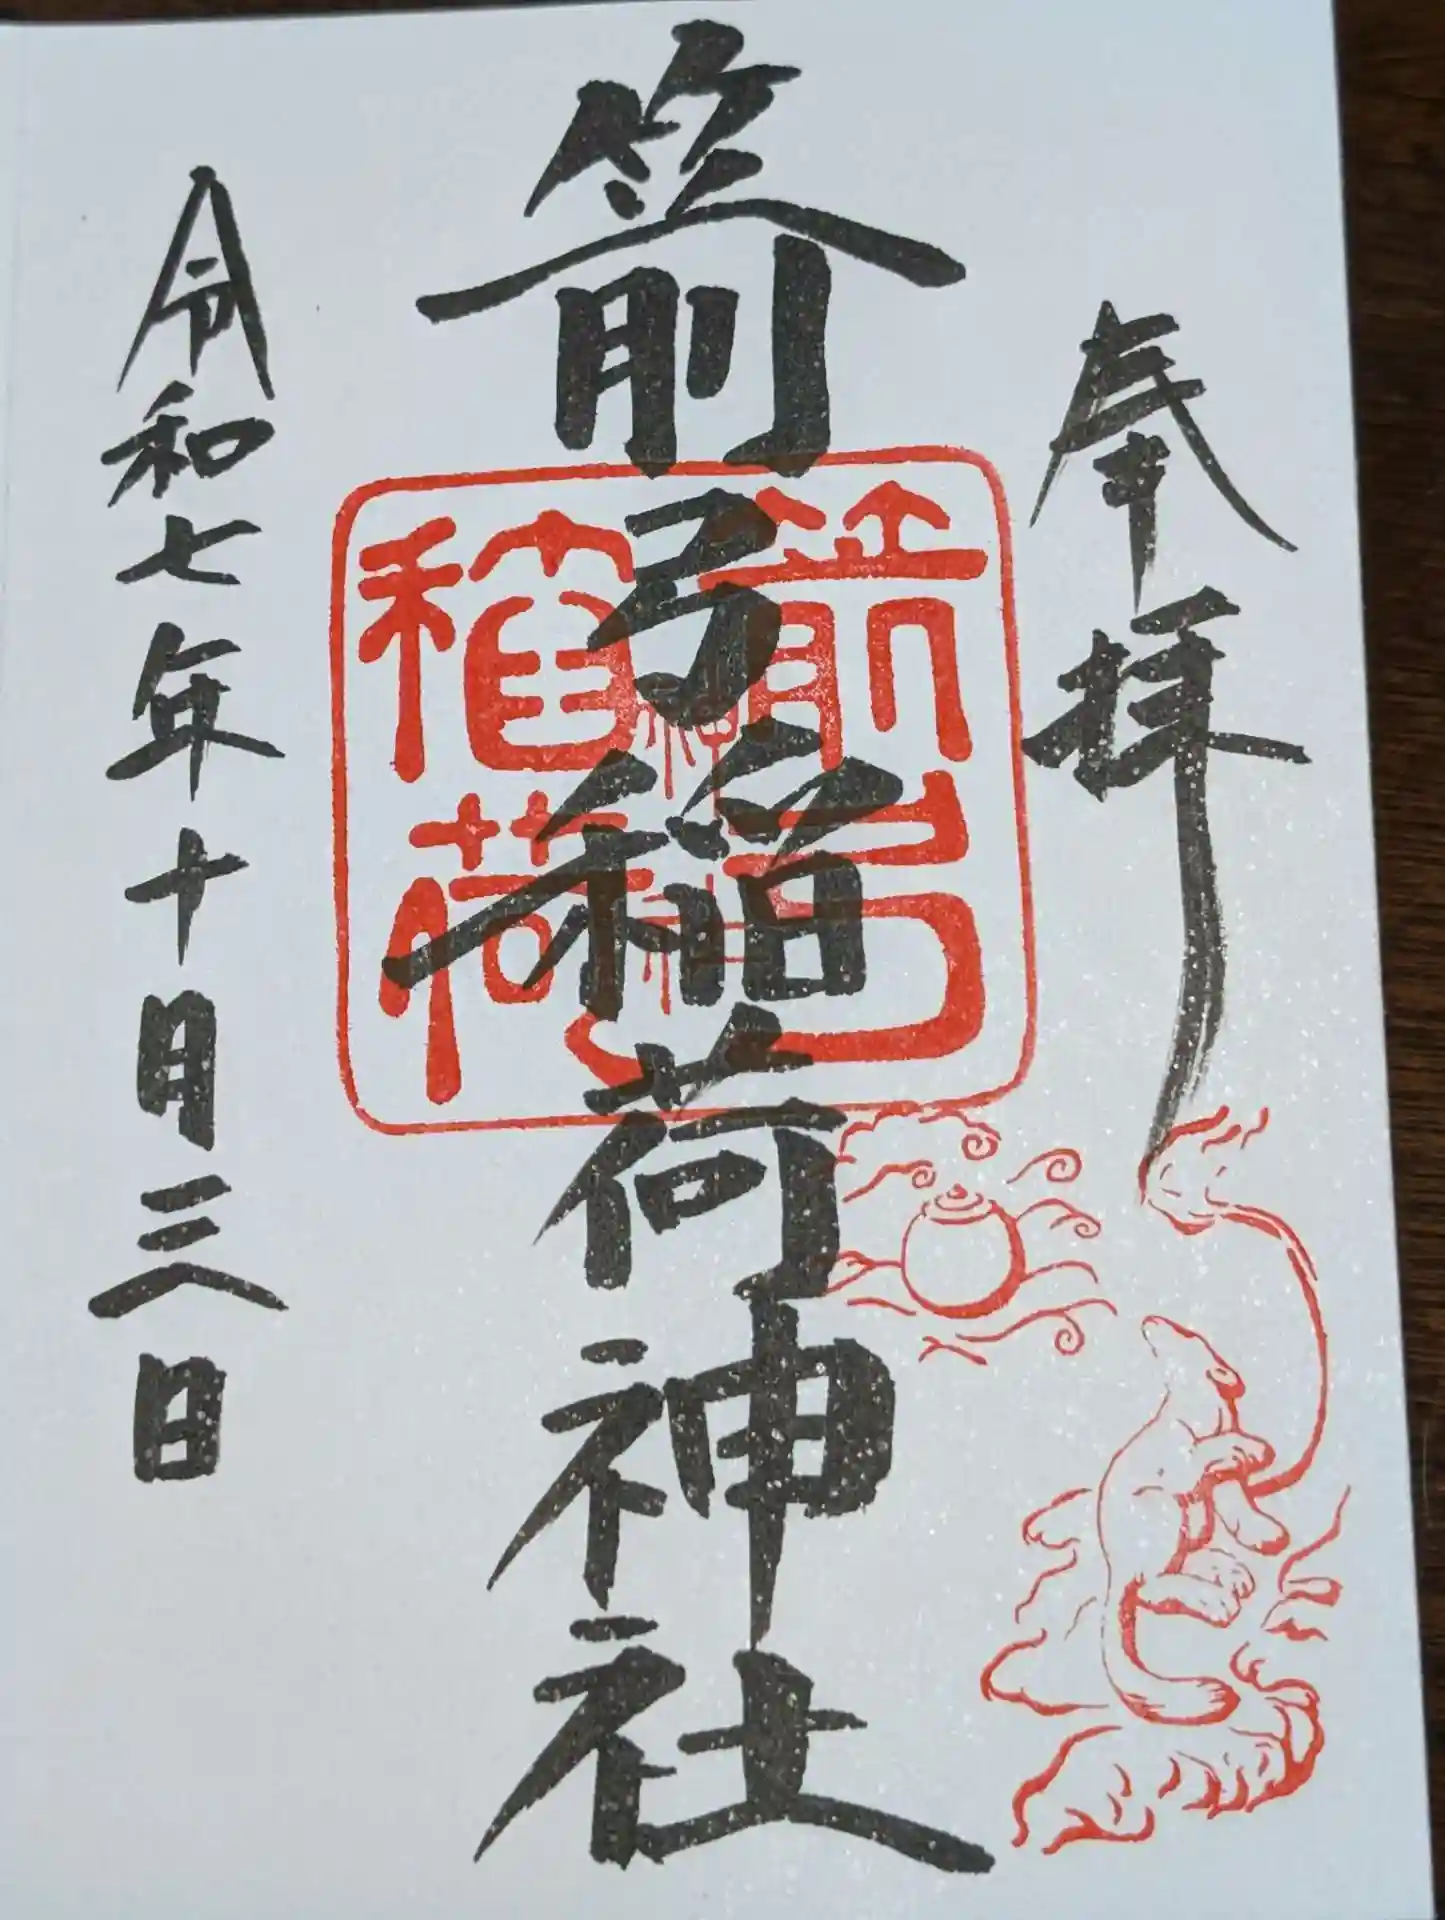 奉拝
箭弓稲荷神社
箭弓
稲荷
令和七年十月日